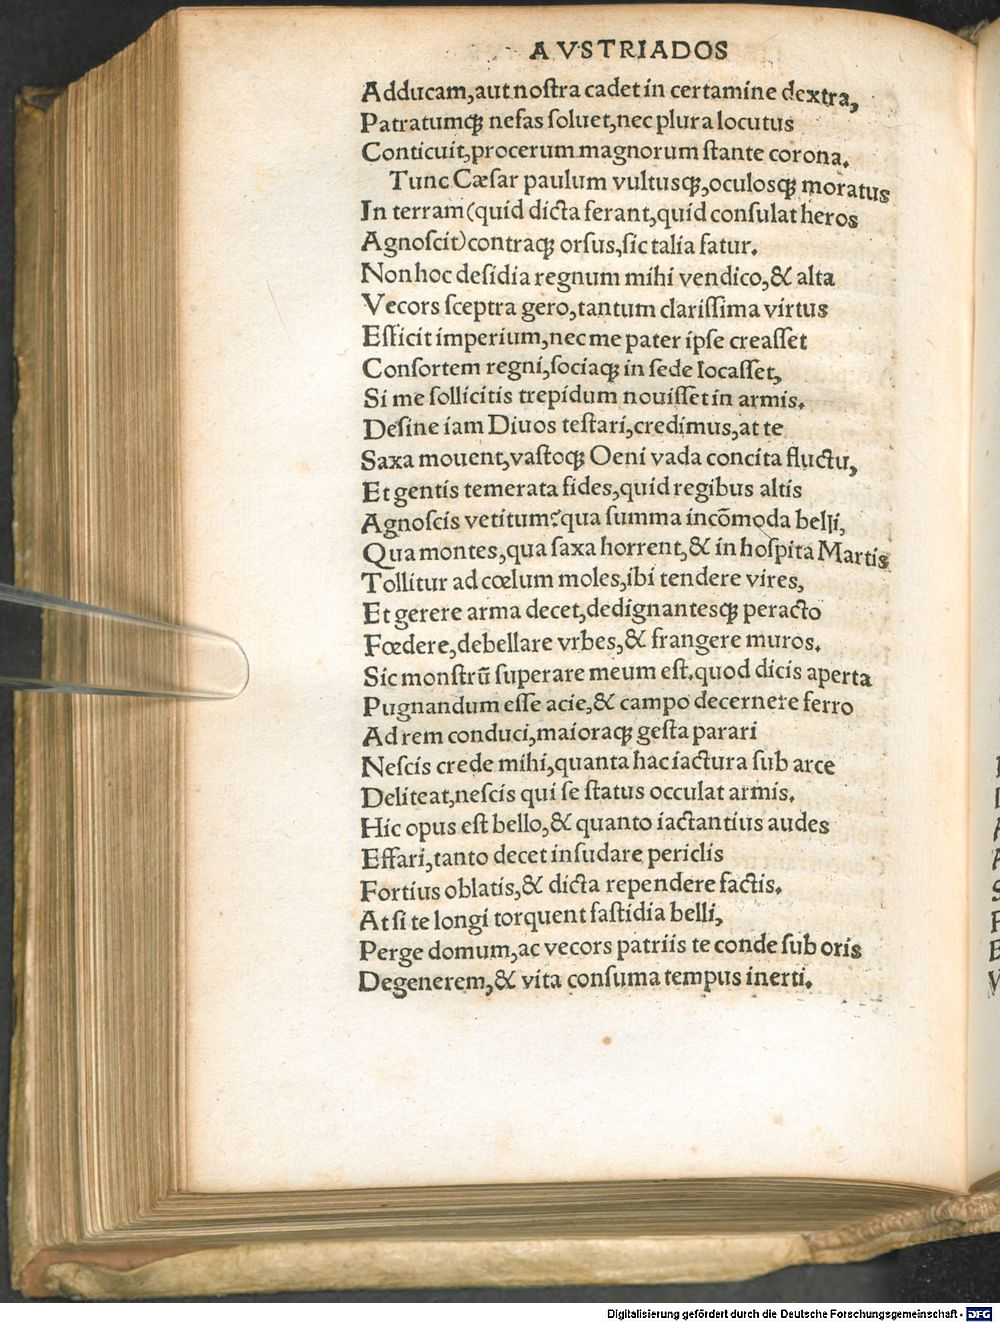 AVSTRIADOS
Adducam,aut noſtra cadet in certamine dextra,
Patratumqꝫ nefas ſoluet,nec plura locutus
Conticuit,procerum magnorum ſtante corona.
Tunc Cæſar paulum vultusqꝫ,oculosqꝫ moratus
In terram(quid dicta ferant,quid conſulat heros
Agnoſcit)contraqꝫ orſus,ſic talia fatur.
Non hoc deſidia regnum mihi vendico,& alta
Vecors ſceptra gero,tantum clariſſima virtus
Efficit imperium,nec me pater ipſe creaſſet
Conſortem regni,ſociaqꝫ in ſede locaſſet,
Si me ſollicitis trepidum nouiſſet in armis.
Deſine iam Diuos teſtari,credimus,at te
Saxa mouent,vaſtoqꝫ Oeni vada concita fluctu,
Et gentis temerata fides,quid regibus altis
Agnoſcis vetitum?qua ſumma incõmoda belli,
Qua montes,qua ſaxa horrent,& in hoſpita Martis
Tollitur ad cœlum moles,ibi tendere vires,
Et gerere arma decet,dedignantesqꝫ peracto
Fœdere,debellare vrbes,& frangere muros.
Sic monſtrũ ſuperare meum eſt.quod dicis aperta
Pugnandum eſſe acie,& campo decernere ferro
Ad rem conduci,maioraqꝫ geſta parari
Neſcis crede mihi,quanta hac iactura ſub arce
Deliteat,neſcis qui ſe ſtatus occulat armis.
Hic opus eſt bello,& quanto iactantius audes
Effari,tanto decet inſudare periclis
Fortius oblatis,& dicta rependere factis.
At ſi te longi torquent faſtidia belli,
Perge domum,ac vecors patriis te conde ſub oris
Degenerem,& vita conſuma tempus inerti.
Digitalisierung gefördert durch die Deutsche Forschungsgemeinschaft - DFG